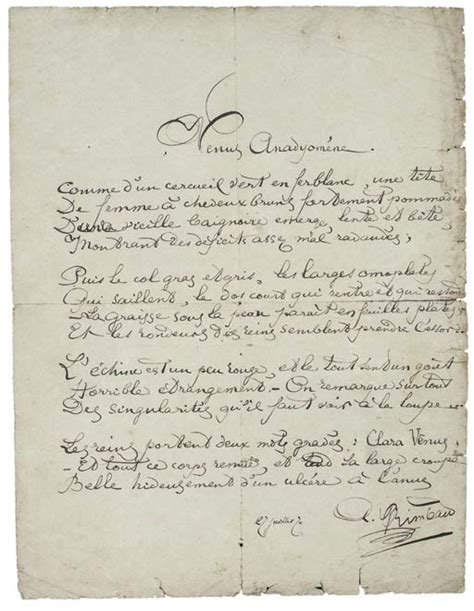 Venus Anadyomène.
Comme d'un cercueil vert en ferblanc, une tête
De femme à cheveux bruns fortement pommadés
D'une vieille baignoire émerge, lente et bête,
Montrant des déficits assez mal ravaudés;
Puis le col gras et gris, les larges omoplates
Qui saillent, le dos court qui rentre et qui ressort
La graisse sous la peau paraît en feuilles plates
Et les rondeurs des reins semblent prendre l'essor
L'échine est un peu rouge, et le tout sent un goût
Horrible étrangement. - On remarque surtout
Des singularités qu'il faut voir à la loupe
Les reins portent deux mots gravés: Clara Venus
- Et tout ce corps remue, et tend sa large croupe
Belle hideusement d'un ulcère à l'anus
27 juillet 7
A. Rimbaud